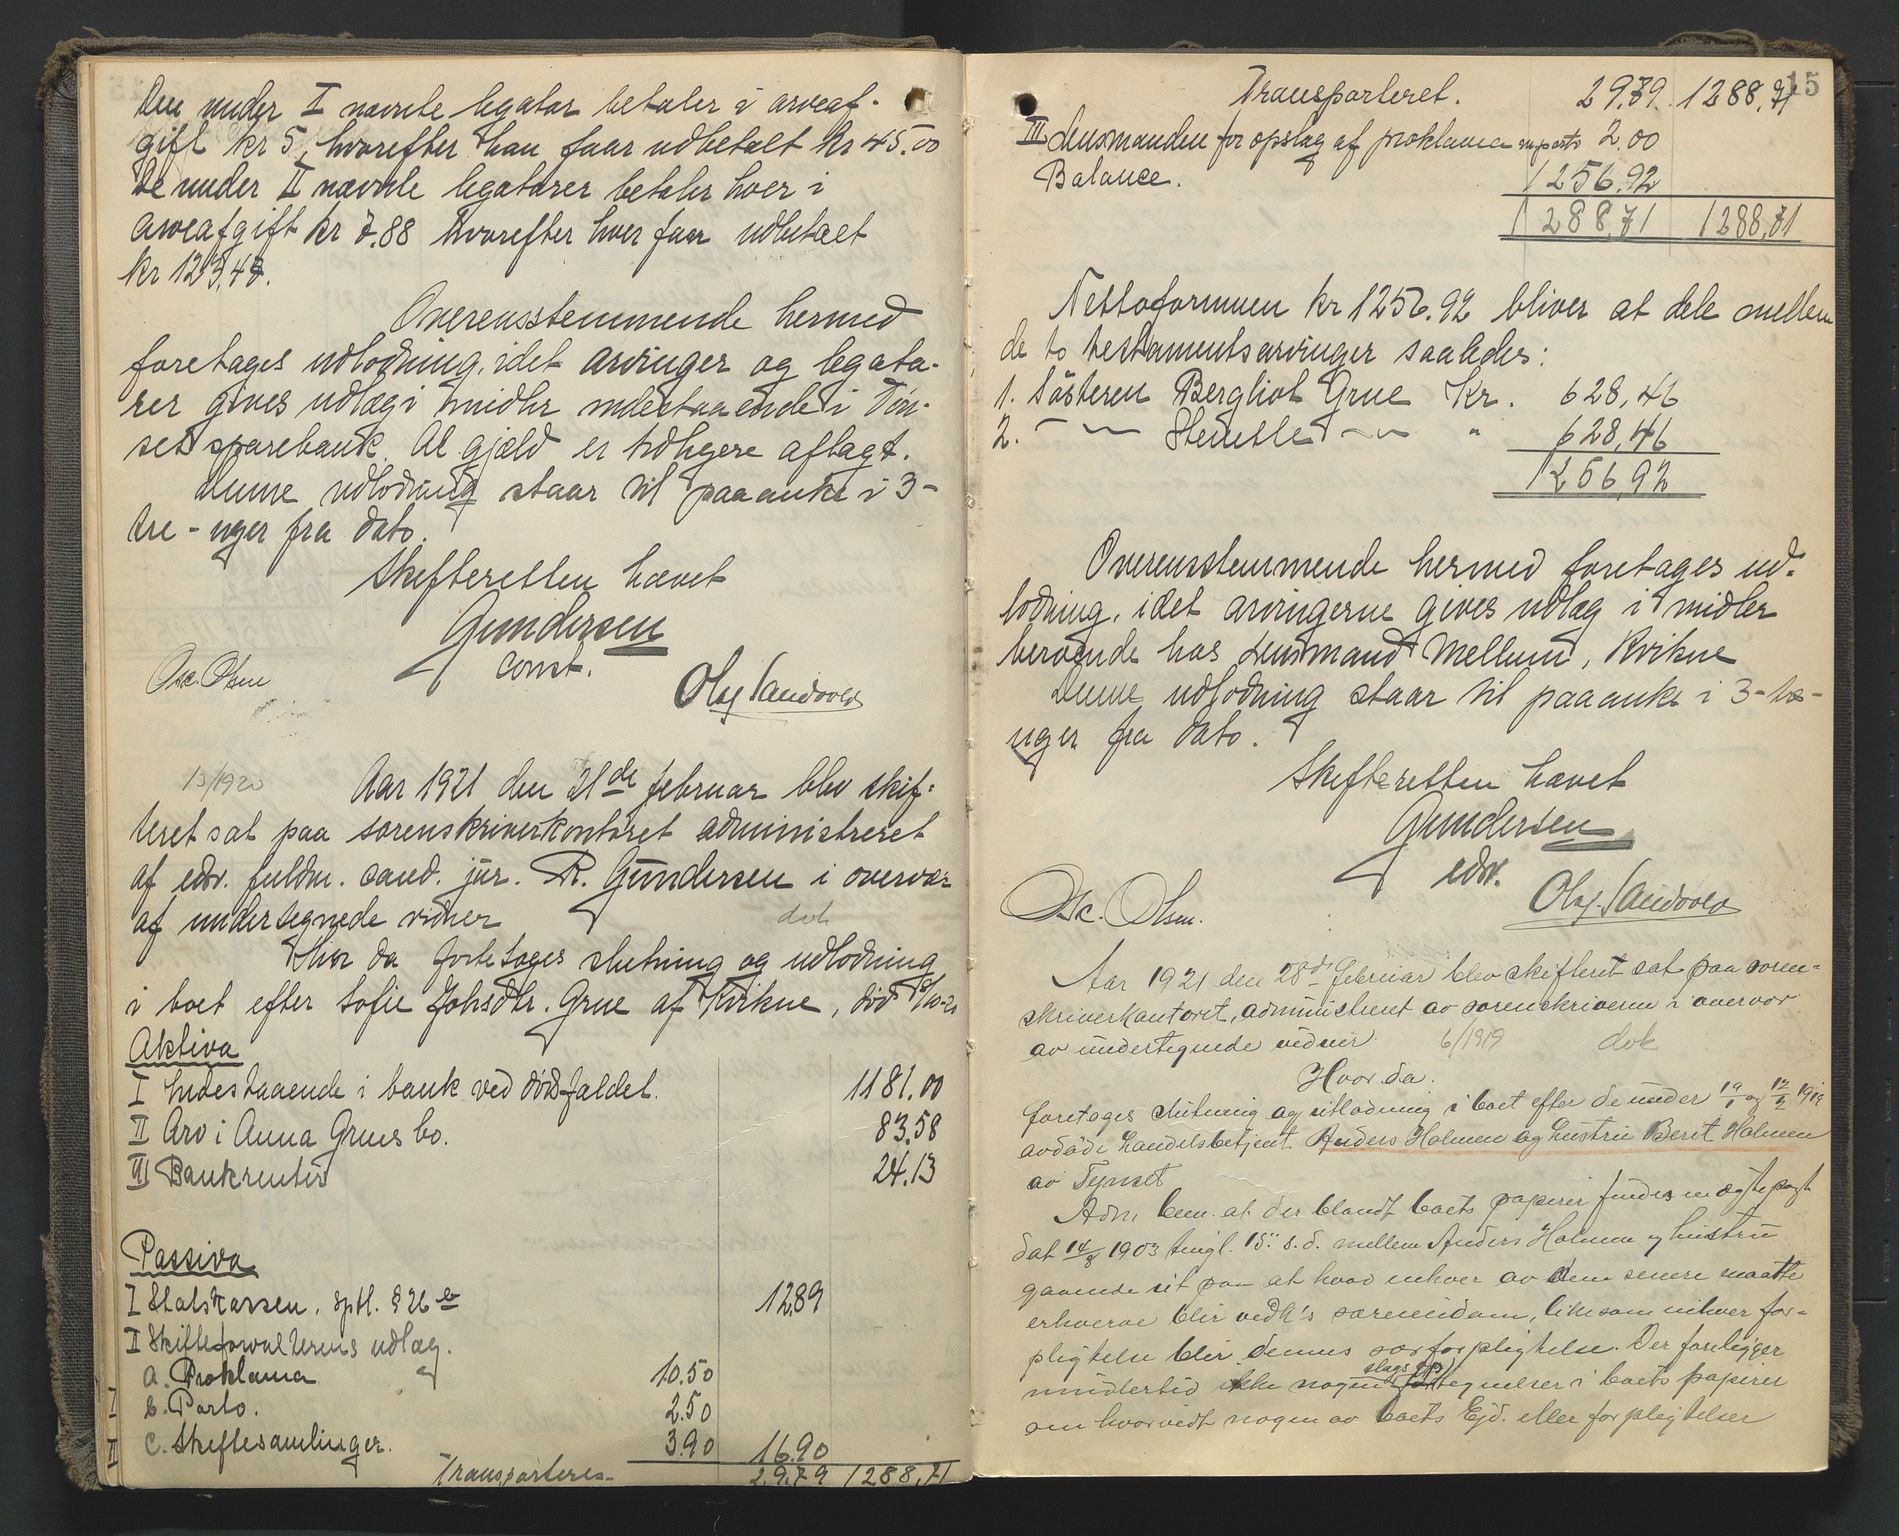 Den under I nævnte legatar betaler i arveaf-
gift kr 5, hvorefter han faar udbetalt kr 45.00
De under II nævnte legatarer betaler hver i
arveafgift kr 7.88 hvorefter hver faar udbetalt
kr 123,48.
Overensstemmende hermed
foretages udlodning, idet arvinger og legata-
rer gives udlæg i midler indestaaende i Tøn-
set sparebank. Al gjæld er tidligere aflagt.
Denne udlodning staar til paaanke i 3-
tre - uger fra dato.
Skifteretten hævet
Gundersen
const.
Osc. Olsen
Olaf Sandvold
13/1920
Aar 1921 den 21de februar blev skif-
teret sat paa sorenskriverkontoret administreret
af edsv. fuldm. cand. jur. R. Gundersen i overvær
af undertegnede vidner
dok
Hvor da foretages slutning og udlodning
i boet efter Sofie Johsdtr. Grue af Kvikne, død
Aktiva
I Indestaaende i bank ved dødsfaldet. 1181.00
II Arv i Anna Grues bo. 83.58
III Bankrenter 24.13
Passiva
I Statskassen, sptl. § 26 b 12,89
II Skifteforvalterens udlæg.
a. Proklama 10.50
I b. Porto. 2.50
II c. Skiftesamlinger. 3.90 16.90
Transporteres 29.79 1288,71
15
Transporteret. 29,79. 1288,71
III Lensmanden for opslag af proklama m porto 2.00
Balance. 1256,92
1288,71 1288,71
Nettoformuen kr 1256.92 bliver at dele mellem
de to testamentsarvinger saaledes:
1. Søsteren Bergliot Grue Kr. 628,46
2. — " — Stenette — " — " 628,46
1256,92
Overensstemmende hermed foretages ud-
lodning, idet arvingerne gives udlæg i midler
beroende hos Lensmand Mellum, Kvikne
Denne udlodning staar til paaanke i 3-tre-
uger fra dato.
Skifteretten hævet
Gundersen
edsv.
Osc. Olsen.
Olaf Sandvold
Aar 1921 den 28de februar blev skifteret sat paa soren-
skriverkontoret, administreret av sorenskriveren i overvær
av undertegnede vidner. 6/1919 dok
Hvor da.
foretages slutning og utlodning i boet efter de under 19/1 og 12/2 1919
avdøde handelsbetjent Anders Holmen og hustru Beret Holmen
av Tynset
Adm. bem. at der blandt boets papirer findes en ægtepagt
dat 14/8 1903 tingl. 15. s.d. mellem Anders Holmen og hustru
gaaende ut paa at hvad enhver av dem senere maatte
erhverve blir vedk's særeiendom, likesom enhver for-
pligtelse blir dennes særforpligtelse. Der foreligger
imidlertid ikke nogen slags op tegnelser i boets papirer
om hvorvidt nogen av boets Ejd. eller forpligtelser